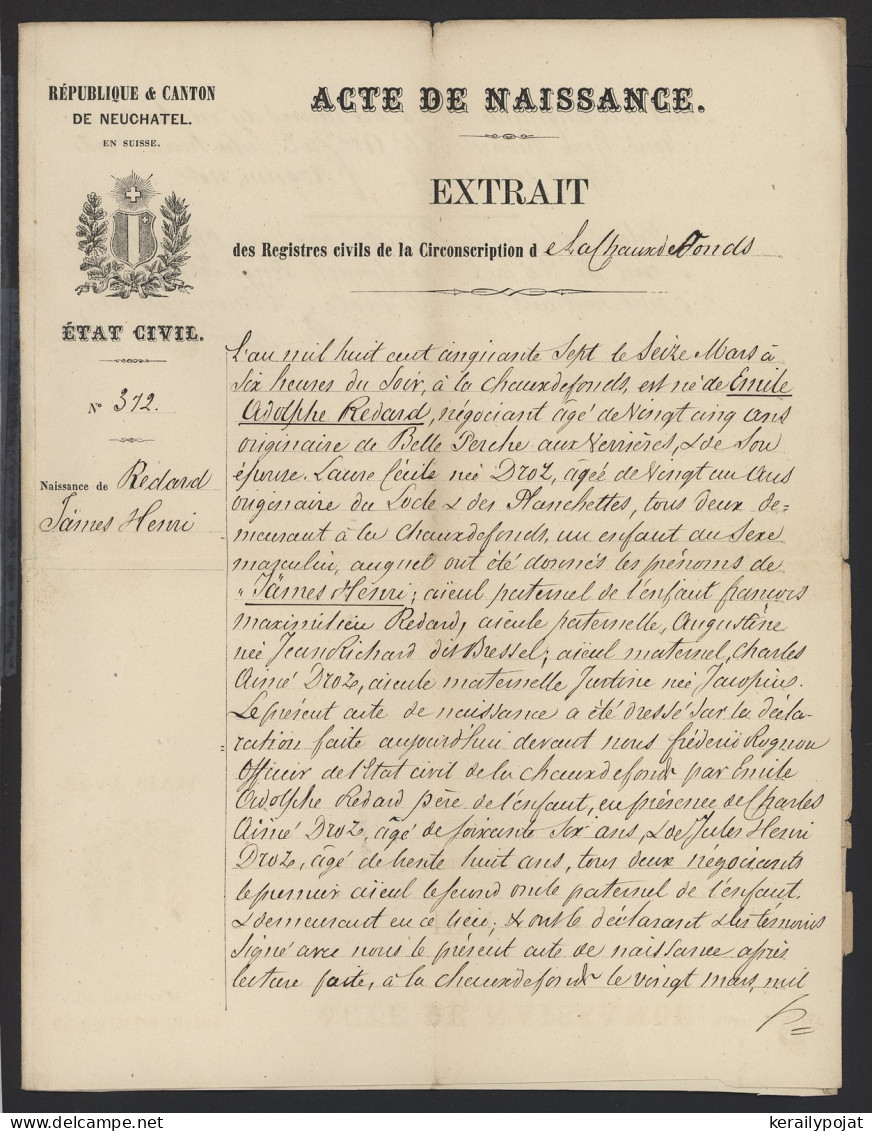 RÉPUBLIQUE & CANTON
DE NEUCHATEL.
EN SUISSE.
ÉTAT CIVIL.
N° 372.
Naissance de Redard
Jämes Henri
ACTE DE NAISSANCE.
EXTRAIT
des Registres civils de la Circonscription de LaChauxdeFonds
L'an mil huit cent cinquante Sept le Seize Mars à
Six heures du Soir, à la Chauxdefonds, est né de Emile
Adolphe Redard, négociant âgé de Vingt cinq ans
originaire de Belle Perche aux Verrières, & de Son
épouse. Laure Cécile neé Droz, âgée de Vingt un ans
originaire du Locle & des Planchettes, tous deux de=
meurant à la Chauxdefonds, un enfant du Sexe
masculin, auquel ont été donnés les prénoms de
"Jämes Henri; aïeul paternel de l'enfant françois
maximilien Redard, aïeule paternelle, Augustine
neé JeanRichard dit Bressel; aïeul maternel, Charles
Aimé Droz, aïeule maternelle Justine neé Jacopin.
Le présent acte de naissance a été dressé Sur la décla-
ration faite aujourd'hui devant nous fréderic Rognon
Officier de l'Etat civil de la Chauxdefonds par Emile
Adolphe Redard père de l'enfant, en présence de Charles
Aimé Droz, âgé de soixante Six ans, & de Jules Henri
Droz, âgé de trente huit ans, tous deux négociants
le premier aïeul le second oncle paternel de l'enfant.
& demeurant en ce lieu; & ont le déclarant & les témoins
Signé avec nous le présent acte de naissance après
lecture faite, à la Chauxdefonds le vingt mars, mil
kerailypojat@hotmail.com